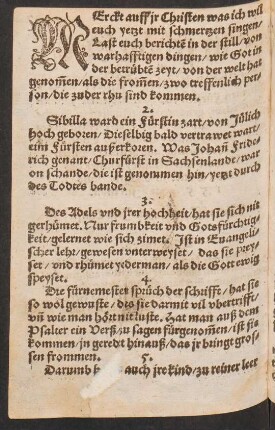 MErckt auff jr Christen was ich wil
euch yetzt mit schmertzen singen/
Last euch berichtē in der still/ von
warhafftigen dingen/ wie Got in
der betrübtē zeyt/ von der welt hat
genom̄en/ als die from̄en/ zwo treffenlich per-
son/ die zu der rhu sind kommen.
2.
Sibilla ward ein Fürstin zart/ von Jülich
hoch geboren/ Dieselbig bald vertrawet wart/
ein Fürsten außerkoren. Was Johan̄ Fride-
rich genant/ Churfürst in Sachsenlande/ war
on schande/ die ist genommen hin/ yetzt durch
des Todtes bande.
3.
Des Adels vnd jrer hochheit/ hat sie sich nit
gerhümet. Nur frumbkeit vnd Gotsfürchtig-
keit/ gelernet wie sich zimet. Ist in Euangeli-
scher lehr/ gewesen vnterweyset/ das sie prey-
set/ vnd rhümet yederman/ als die Gott ewig
speyset.
4.
Die fürnemesten sprüch der schrifft/ hat sie
so wol gewuste/ des sie darmit vil vbertrifft/
vn̄ wie man hört mit luste. Hat man auß dem
Psalter ein Verß/ zu sagen fürgenom̄en/ ist sie
kommen/ jn geredt hinauß/ das jr bringt gros-
sen frommen.
5.
Darumb auch jre kind/ zu reiner leer